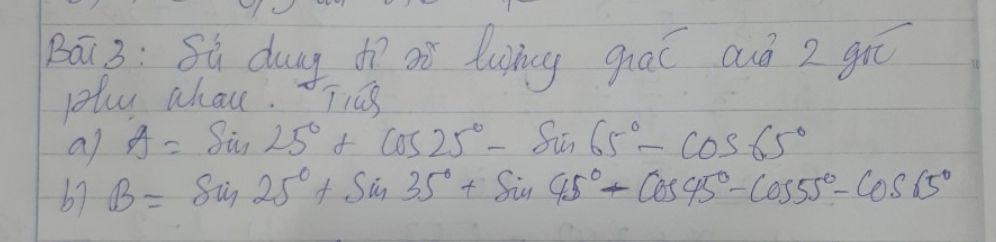 Bài 3: Sử dụng tỉ số lượng giác của 2 góc
phụ nhau. Tính
a) A = Sin 25° + cos 25° - Sin 65° - cos 65°
b) B = Sin 25° + Sin 35° + Sin 45° - Cos 45° - Cos 55° - Cos 65°